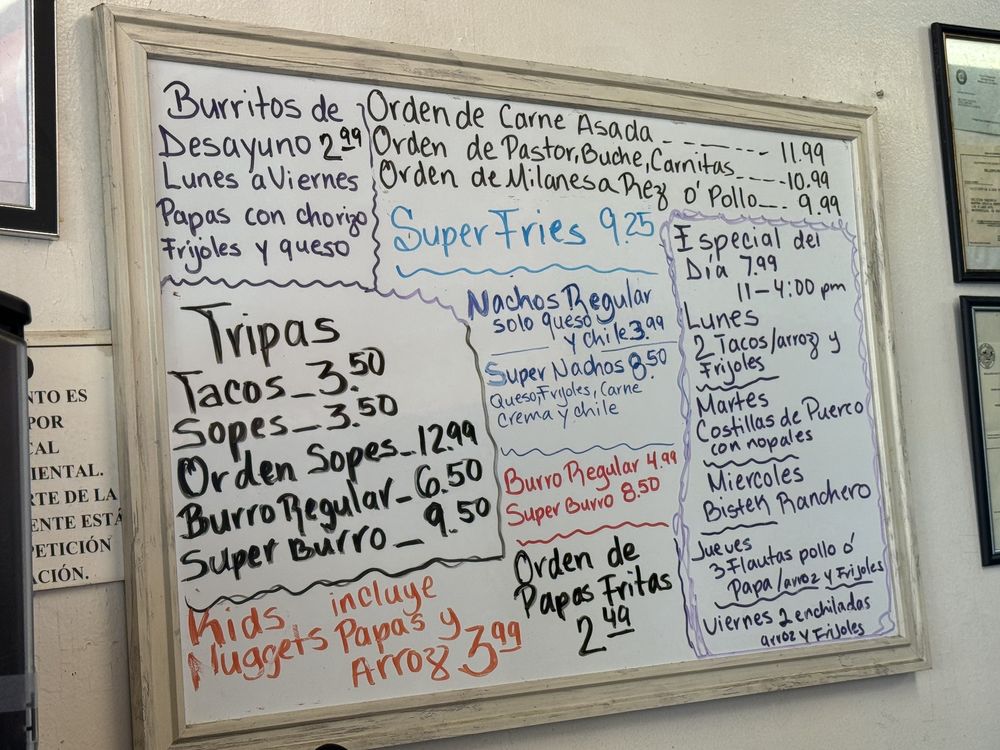 Burritos de
Desayuno 2.99
Lunes a Viernes
Papas con chorizo
Frijoles y queso
Orden de Carne Asada _ _ _ _ _ _ _ 11.99
Orden de Pastor, Buche, Carnitas _ _ _ _ 10.99
Orden de Milanesa Rez o' Pollo _ _ . 9.99
Super Fries 9.25
Tripas
Tacos _ 3.50
Sopes _ 3.50
Orden Sopes _ 12.99
Burro Regular _ 6.50
Super Burro _ 9.50
Nachos Regular
solo queso
y chile 3.99
Super Nachos 8.50
Queso, Frijoles, Carne
Crema y chile
Burro Regular 4.99
Super Burro 8.50
Kids incluye
Nuggets Papas y
Arroz 3.99
Orden de
Papas Fritas
2.49
Especial del
Día 7.99
11 - 4:00 pm
Lunes
2 Tacos/arroz y
Frijoles
Martes
Costillas de Puerco
con nopales
Miercoles
Bistek Ranchero
Jueves
3 Flautas pollo o'
Papa/arroz y Frijoles
Viernes 2 enchiladas
arroz y Frijoles
NTO ES
POR
CAL
IENTAL.
RTE DE LA
ENTE ESTÁ
PETICIÓN
ACIÓN.